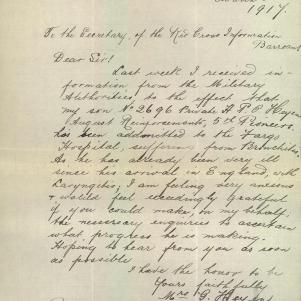 1917.
To the Secretary, of the Red Cross Information
Bureau
Dear Sir!
Last week I received in-
formation from the Military
Authorities to the effect that
my son No 2696 Private H. P. C. Heyen
August Reinforcements, 5th Pioneers,
has been addmitted to the Fargo
Hospital, suffering from Bronchitis.
As he has already been very ill
sense his arrival in England, with
Laryngitis; I am feeling very anxious
& would feel exceedingly grateful
if you could make, on my behalf,
the necessary enquiries to ascertain
what progress he is making.
Hoping to hear from you as soon
as possible
I have the honor to be
Yours faithfully
Mrs G. Heyen